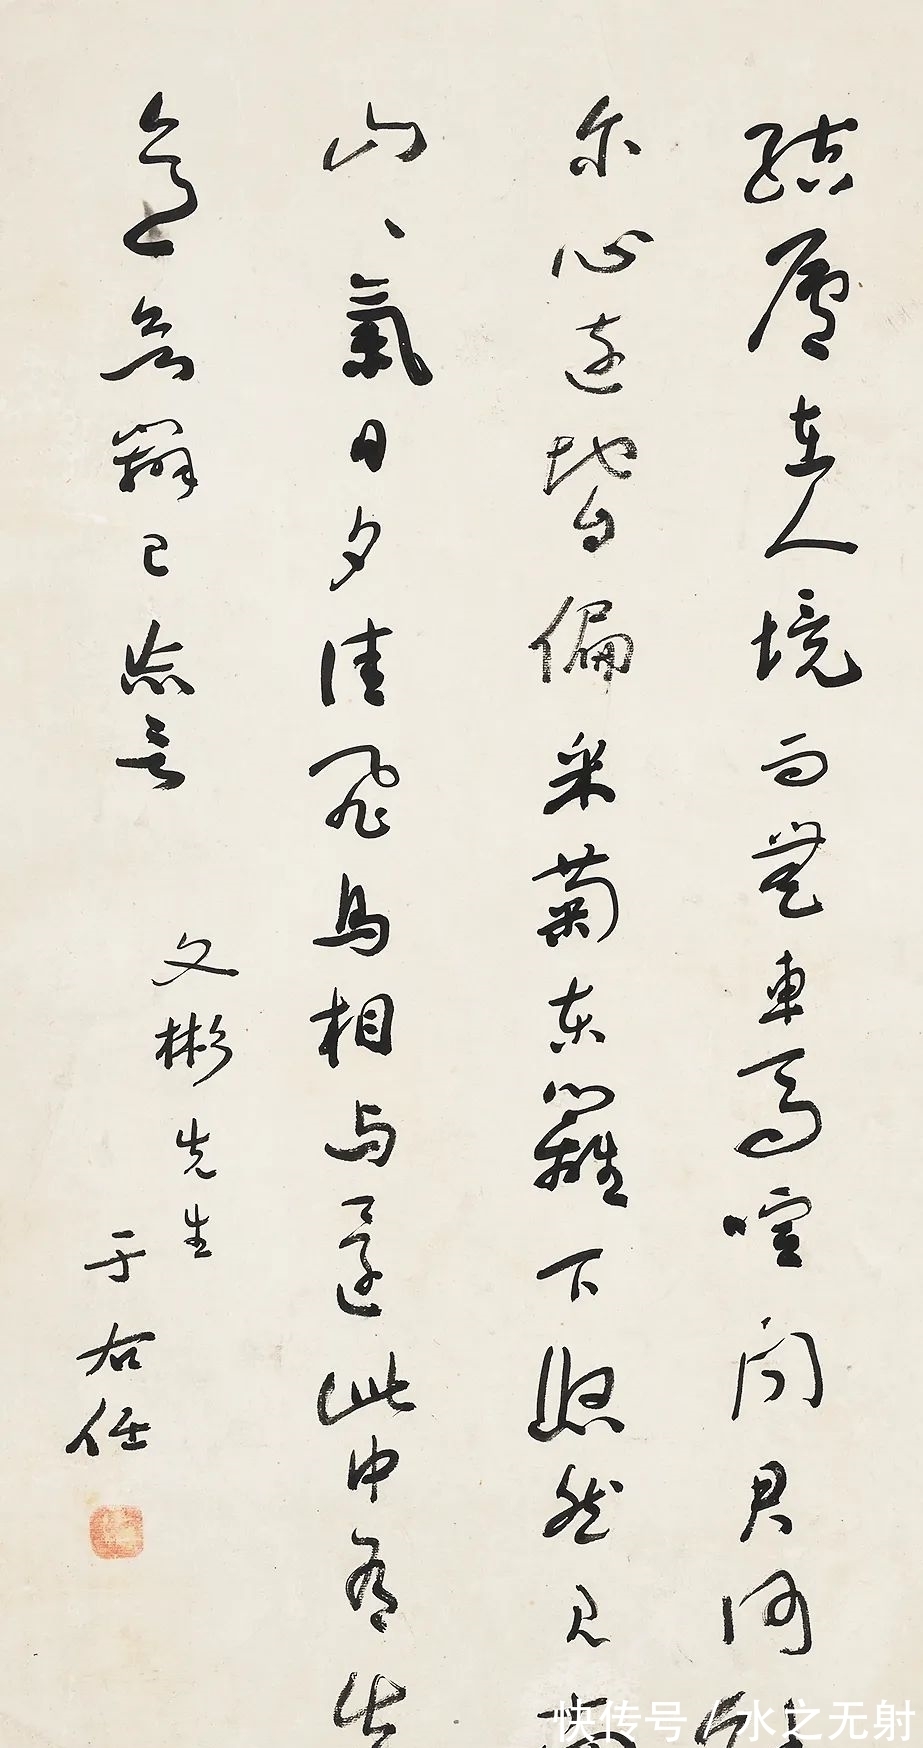 結廬在人境而無車馬喧問君何
尔心遠地自偏采菊東籬下悠然見南
山、氣日夕佳飛鳥相与還此中有真
意欲辯已忘言
文彬先生
于右任
快传号 / 水之无射